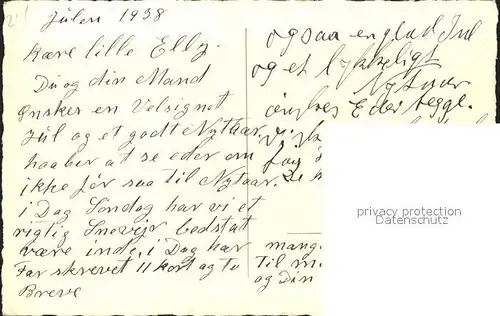 Julen 1938
Kære lille Elly.
Du og din Mand
ønsker en Velsignet
Jul og et godt Nytaar.
haaber at se eder om
ikke før saa til Nytaar.
i Dag Søndag har vi et
rigtig Snevejr bedst at
være inde, i Dag har
Far skrevet 11 kort og to
Breve
og saa en glad Jul
og et lykkeligt
Nytaar
ønskes Eder begge.
mang
Til m
og Din
privacy protection
Datenschutz